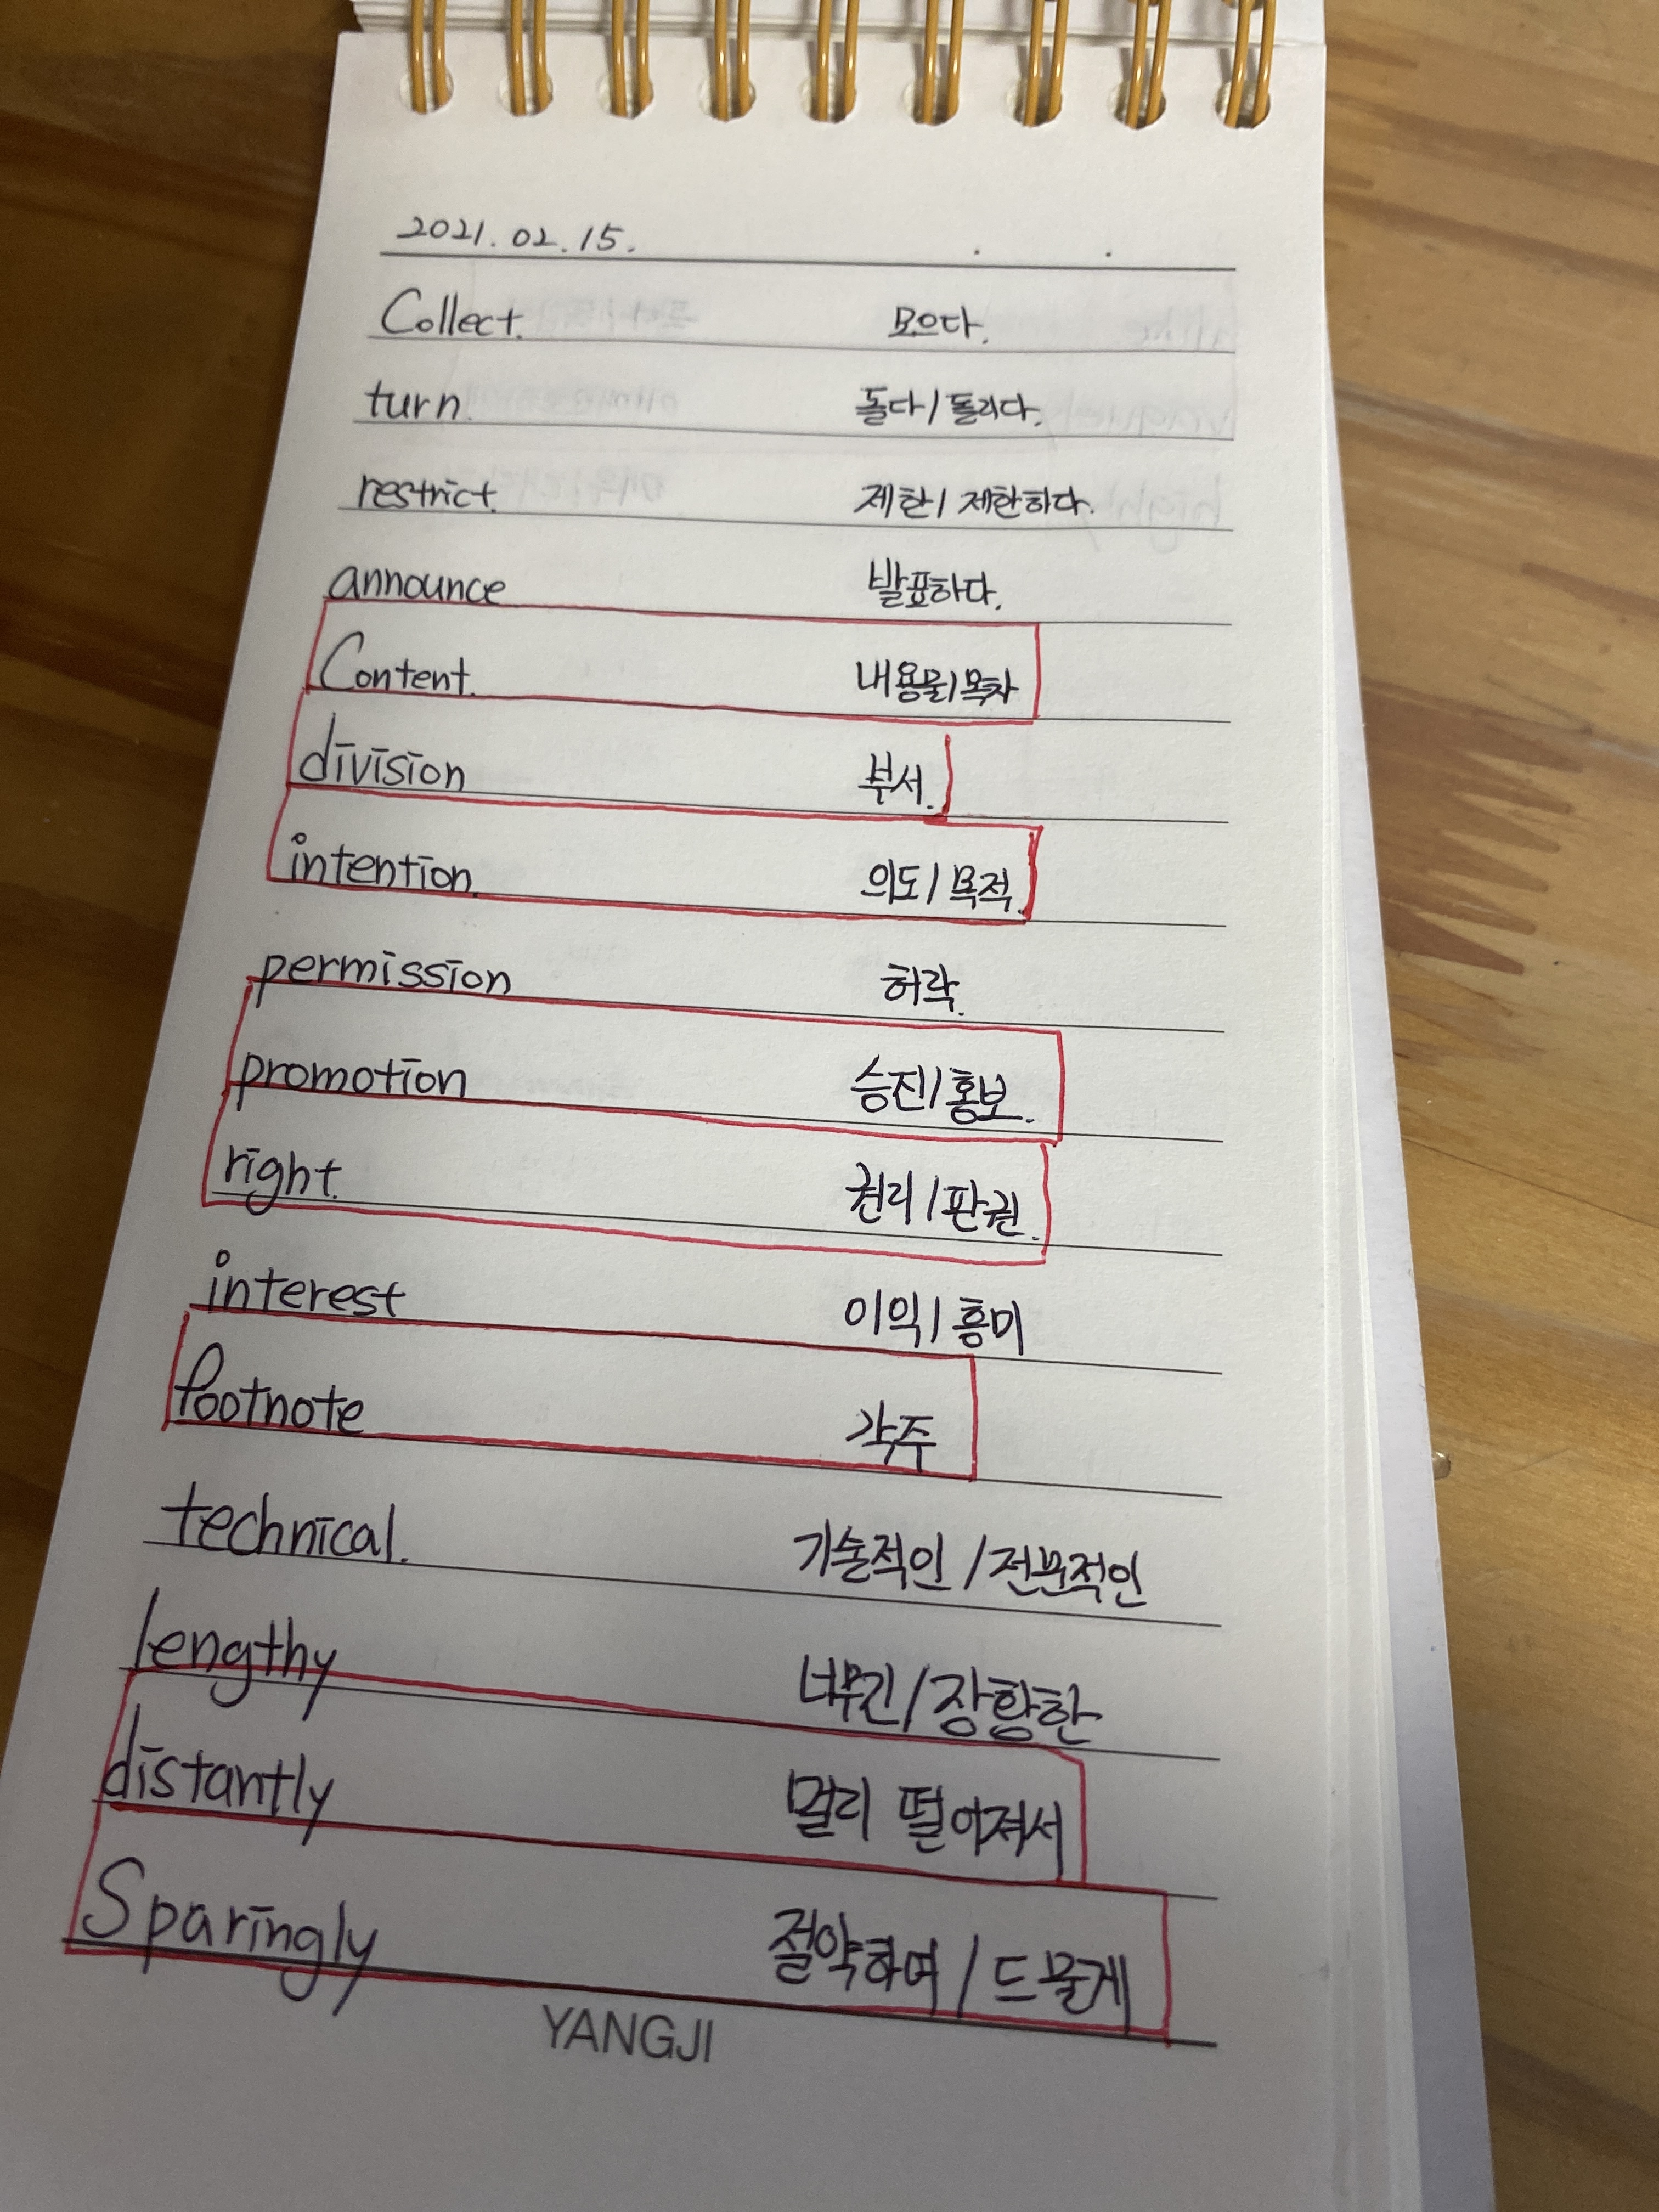 2021.02.15.
Collect. 모으다.
turn. 돌다/돌리다.
restrict. 제한/제한하다.
announce 발표하다.
Content. 내용물/목차
division 부서.
intention. 의도/목적.
permission 허락.
promotion 승진/홍보.
right. 권리/판권.
interest 이익/흥미
footnote 각주
technical. 기술적인/전문적인
lengthy 너무긴/장황한
distantly 멀리 떨어져서
Sparingly 절약하여/드물게
YANGJI